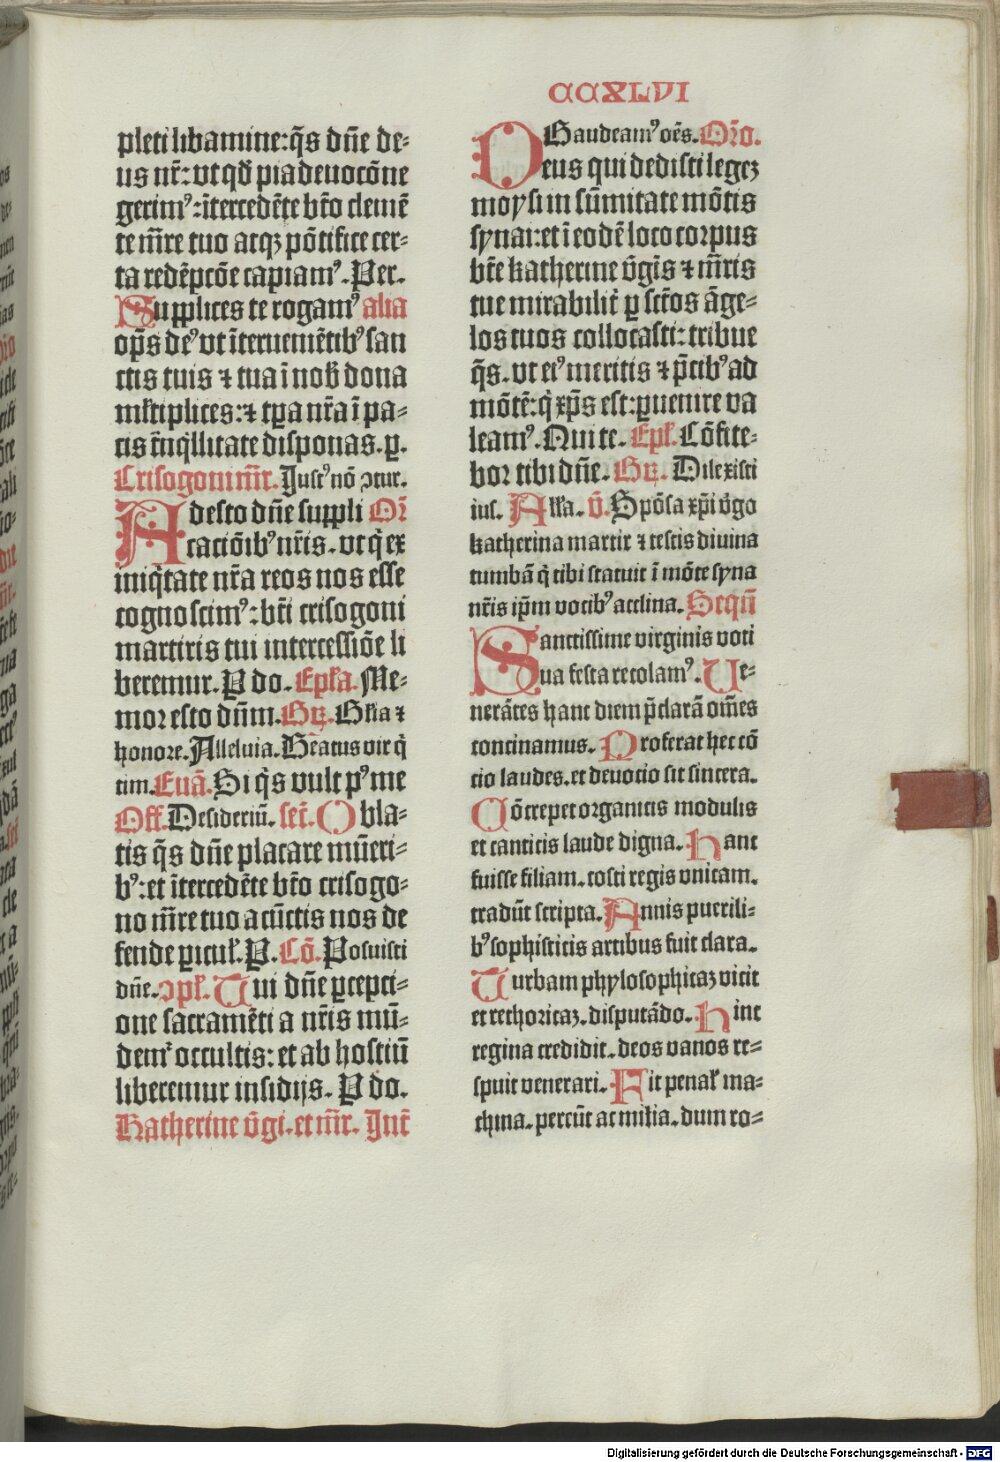 CCXLVI
pleti libamine: q̄s dn̄e de⸗
us nr̄: vt qđ pia deuocōne
gerimꝰ: ītercedēte btō clemē
te mr̄e tuo atqꝫ pōtifice cer⸗
ta redēpcōe capiamꝰ. Per.
Supplices te rogamꝰ alia
op̄s deꝰ vt īteruenīētibꝰ san
ctis tuis ⁊ tua ī nob̄ dona
ml̄tiplices: ⁊ tꝑa nr̄a ī pa⸗
cis t̄nq̇llitate disponas. ꝑ.
Crisogoni mr̄. Iustꝰ nō ↄtur.
Adesto dn̄e suppli Or̄
caciōibꝰ nr̄is. vt q̇ ex
iniq̇tate nr̄a reos nos esse
cognoscimꝰ: bt̄i crisogoni
martiris tui intercessiōe li
beremur. P do. Epl̄a. Me⸗
mor esto dn̄m. Gꝝ. Gl̄ia ⁊
honore. Alleluia. Beatus vir q̇
tim. Euā. Si q̇s vult pꝰ me
Off. Desideriū. secr̄. Obla⸗
tis q̄s dn̄e placare mūeri⸗
bꝰ: et ītercedēte btō crisogo⸗
no mr̄e tuo a cūctis nos de
fende ꝑicul̄. P. Cō. Posuisti
dn̄e. ↄpl̄. Tui dn̄e ꝑcepci⸗
one sacramēti a nr̄is mū⸗
demꝰ occultis: et ab hostiū
liberemur insidijs. P do.
Katherine v̄gi. et mr̄. Intr̄
Gaudeamꝰ oēs. Or̄o.
Deus qui dedisti legeꝫ
moysi in sūmitate mōtis
synai: et ī eodē loco corpus
btē katherine v̄gīs ⁊ mr̄is
tue mirabilit̄ ꝑ sctōs āge⸗
los tuos collocasti: tribue
q̄s. vt eiꝰ meritis ⁊ p̄cibꝰ ad
mōtē: q̇ xp̄s est: ꝑuenire va
leamꝰ. Qui te. Epl̄. Cōfite⸗
bor tibi dn̄e. Gꝝ. Dilexisti
ius. All̄a. v̄. Spōsa xp̄i v̄go
katherina martir ⁊ testis diuina
tumbā q̇ tibi statuit ī mōte syna
nr̄is ip̄m vocibꝰ acclina. Sequē
Sanctissime virginis voti
ua festa recolamꝰ. Ue⸗
nerātes hanc diem p̄clarā om̄es
concinamus. Proferat hec cō
cio laudes. et deuocio sit sincera.
Cōcrepet organicis modulis
et canticis laude digna. Hanc
fuisse filiam. costi regis vnicam.
tradūt scripta. Annis puerili⸗
bꝰ sophisticis artibus fuit clara.
Turbam phylosophicaꝫ vicit
et rethoricaꝫ. disputādo. Hinc
regina credidit. deos vanos re⸗
spuit venerari. Fit penal̄ ma⸗
china. pereūt ac milia. dum ro⸗
Digitalisierung gefördert durch die Deutsche Forschungsgemeinschaft - DFG